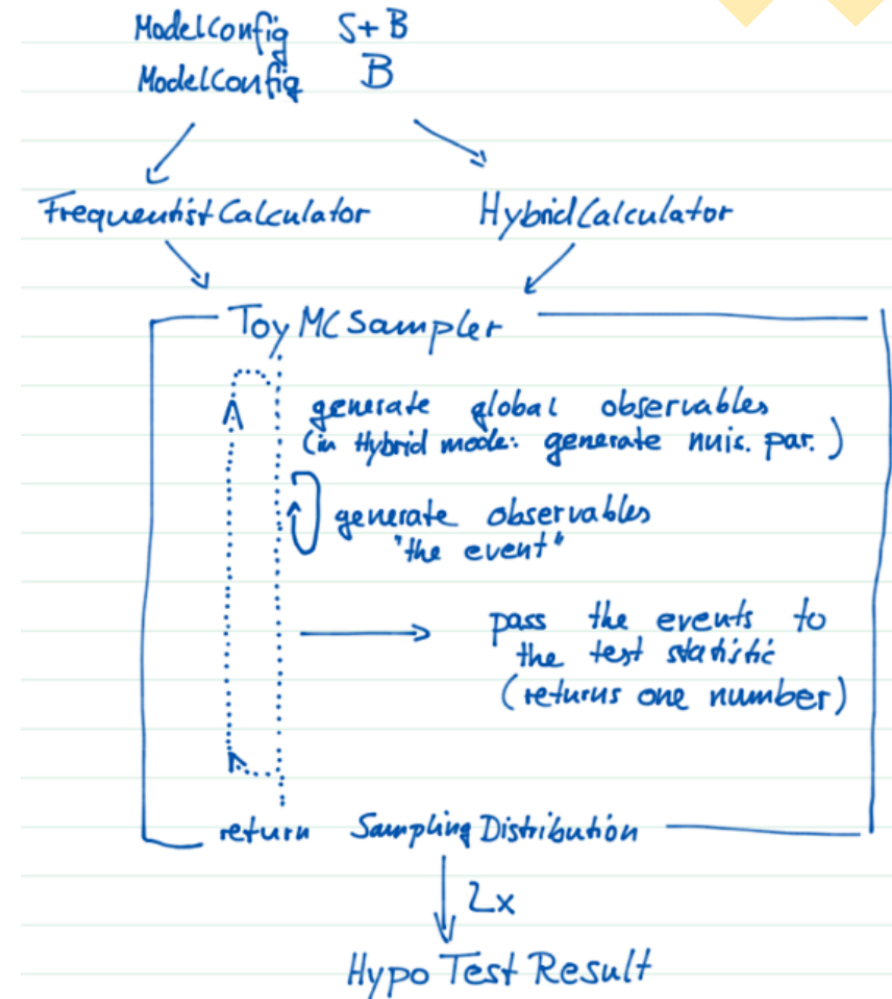 ModelConfig S+B
ModelConfig B
FrequentistCalculator HybridCalculator
ToyMCSampler
generate global observables
(in Hybrid mode: generate nuis. par.)
generate observables
"the event"
pass the events to
the test statistic
(returns one number)
return Sampling Distribution
2x
Hypo Test Result